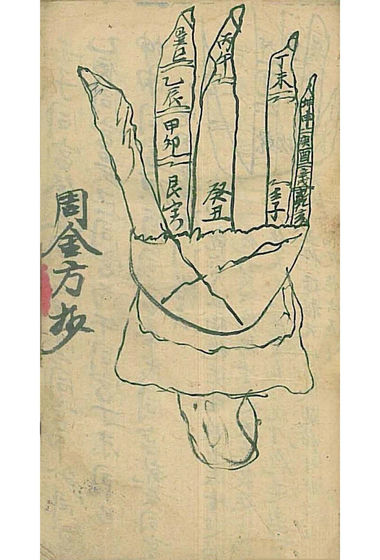 周金方
巽巳
乙辰
甲卯
艮寅
丙午
癸丑
丁未
壬子
坤申
庚酉
乾亥